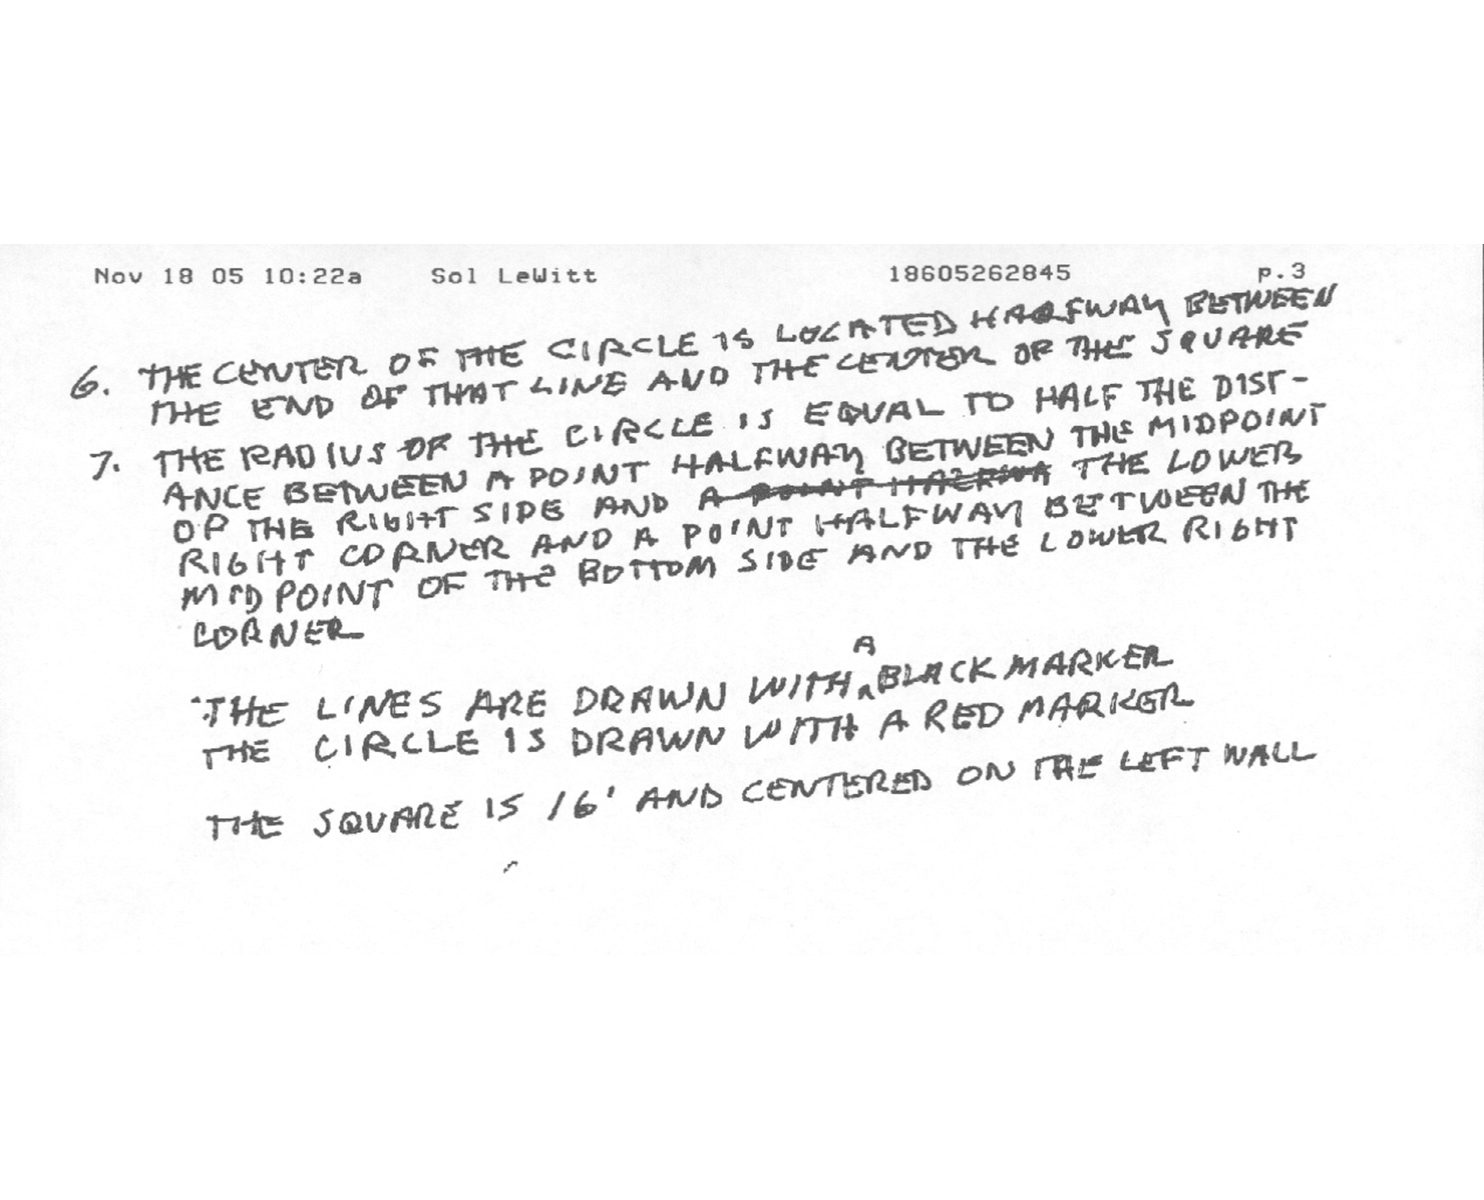 Nov 18 05 10:22a Sol LeWitt 18605262845 p.3
6. THE CENTER OF THE CIRCLE IS LOCATED HALFWAY BETWEEN
THE END OF THAT LINE AND THE CENTER OF THE SQUARE
7. THE RADIUS OF THE CIRCLE IS EQUAL TO HALF THE DIST-
ANCE BETWEEN A POINT HALFWAY BETWEEN THE MIDPOINT
OF THE RIGHT SIDE AND A POINT HALFWA THE LOWER
RIGHT CORNER AND A POINT HALFWAY BETWEEN THE
MIDPOINT OF THE BOTTOM SIDE AND THE LOWER RIGHT
CORNER
THE LINES ARE DRAWN WITH A BLACK MARKER
THE CIRCLE IS DRAWN WITH A RED MARKER
THE SQUARE IS 16' AND CENTERED ON THE LEFT WALL